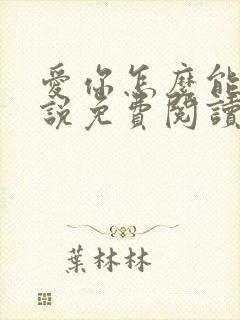 愛你怎麼能
說免費閱讀
葉林林